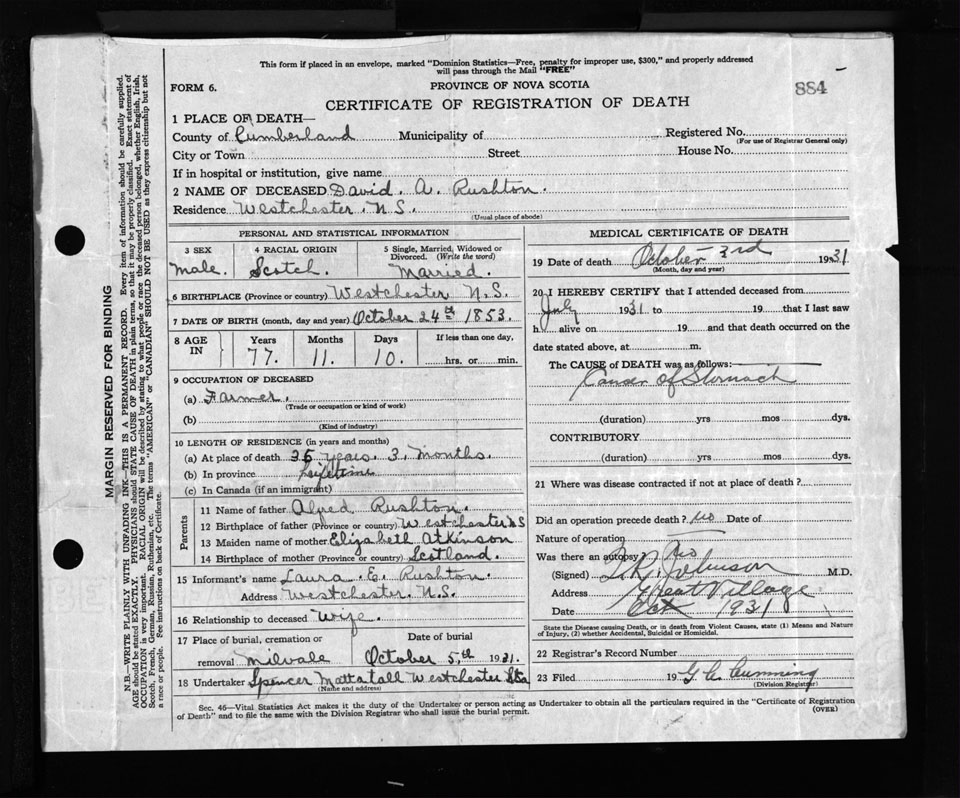 This form if placed in an envelope, marked "Dominion Statistics—Free, penalty for improper use, $300," and properly addressed
will pass through the Mail "FREE"
FORM 6.
PROVINCE OF NOVA SCOTIA
884
CERTIFICATE OF REGISTRATION OF DEATH
1 PLACE OF DEATH—
County of Cumberland Municipality of Registered No.
(For use of Registrar General only)
City or Town Street House No.
If in hospital or institution, give name
2 NAME OF DECEASED David. A. Rushton.
Residence Westchester. N.S.
(Usual place of abode)
PERSONAL AND STATISTICAL INFORMATION
3 SEX
Male.
4 RACIAL ORIGIN
Scotch.
5 Single, Married, Widowed or
Divorced. (Write the word)
Married.
6 BIRTHPLACE (Province or country) Westchester N.S.
7 DATE OF BIRTH (month, day and year) October 24th 1853.
8 AGE
IN
Years Months Days If less than one day,
77. 11. 10. hrs. or min.
9 OCCUPATION OF DECEASED
(a) Farmer.
(Trade or occupation or kind of work)
(b)
(Kind of industry)
10 LENGTH OF RESIDENCE (in years and months)
(a) At place of death 35 years. 3. months.
(b) In province Lifetime
(c) In Canada (if an immigrant)
Parents
11 Name of father Alfred Rushton.
12 Birthplace of father (Province or country) Westchester N S
13 Maiden name of mother Elizabeth Atkinson
14 Birthplace of mother (Province or country) Scotland.
15 Informant's name Laura. E. Rushton.
Address Westchester. N.S.
16 Relationship to deceased Wife.
17 Place of burial, cremation or
removal Milvale
Date of burial
October 5,th 1931.
18 Undertaker Spencer Mattatall Westchester Sta
(Name and address)
MEDICAL CERTIFICATE OF DEATH
19 Date of death October 3rd 1931
(Month, day and year)
20 I HEREBY CERTIFY that I attended deceased from
July 1931 to 19 that I last saw
h alive on 19 and that death occurred on the
date stated above, at m.
The CAUSE OF DEATH was as follows:
Cancer of Stomach
(duration) yrs mos dys.
CONTRIBUTORY
(duration) yrs mos dys.
21 Where was disease contracted if not at place of death?
Did an operation precede death? no Date of
Nature of operation
Was there an autopsy? No
(Signed) T. R. Johnson M.D.
Address Great Village
Date Oct 1931
State the Disease causing Death, or in death from Violent Causes, state (1) Means and Nature
of Injury, (2) whether Accidental, Suicidal or Homicidal.
22 Registrar's Record Number
23 Filed 19 G C Cumming
(Division Registrar)
Sec. 46—Vital Statistics Act makes it the duty of the Undertaker or person acting as Undertaker to obtain all the particulars required in the "Certificate of Registration
of Death" and to file the same with the Division Registrar who shall issue the burial permit.
(OVER)
MARGIN RESERVED FOR BINDING
N.B.—WRITE PLAINLY WITH UNFADING INK—THIS IS A PERMANENT RECORD. Every item of information should be carefully supplied.
AGE should be stated EXACTLY. PHYSICIANS should STATE CAUSE OF DEATH in plain terms, so that it may be properly classified. Exact statement of
OCCUPATION is very important. RACIAL ORIGIN will be described by stating to what people or race the deceased person belonged, whether English, Irish,
Scotch, French, German, Russian, Ruthenian, etc. The terms "AMERICAN" or "CANADIAN" SHOULD NOT BE USED as they express citizenship but not
a race or people. See instructions on back of Certificate.